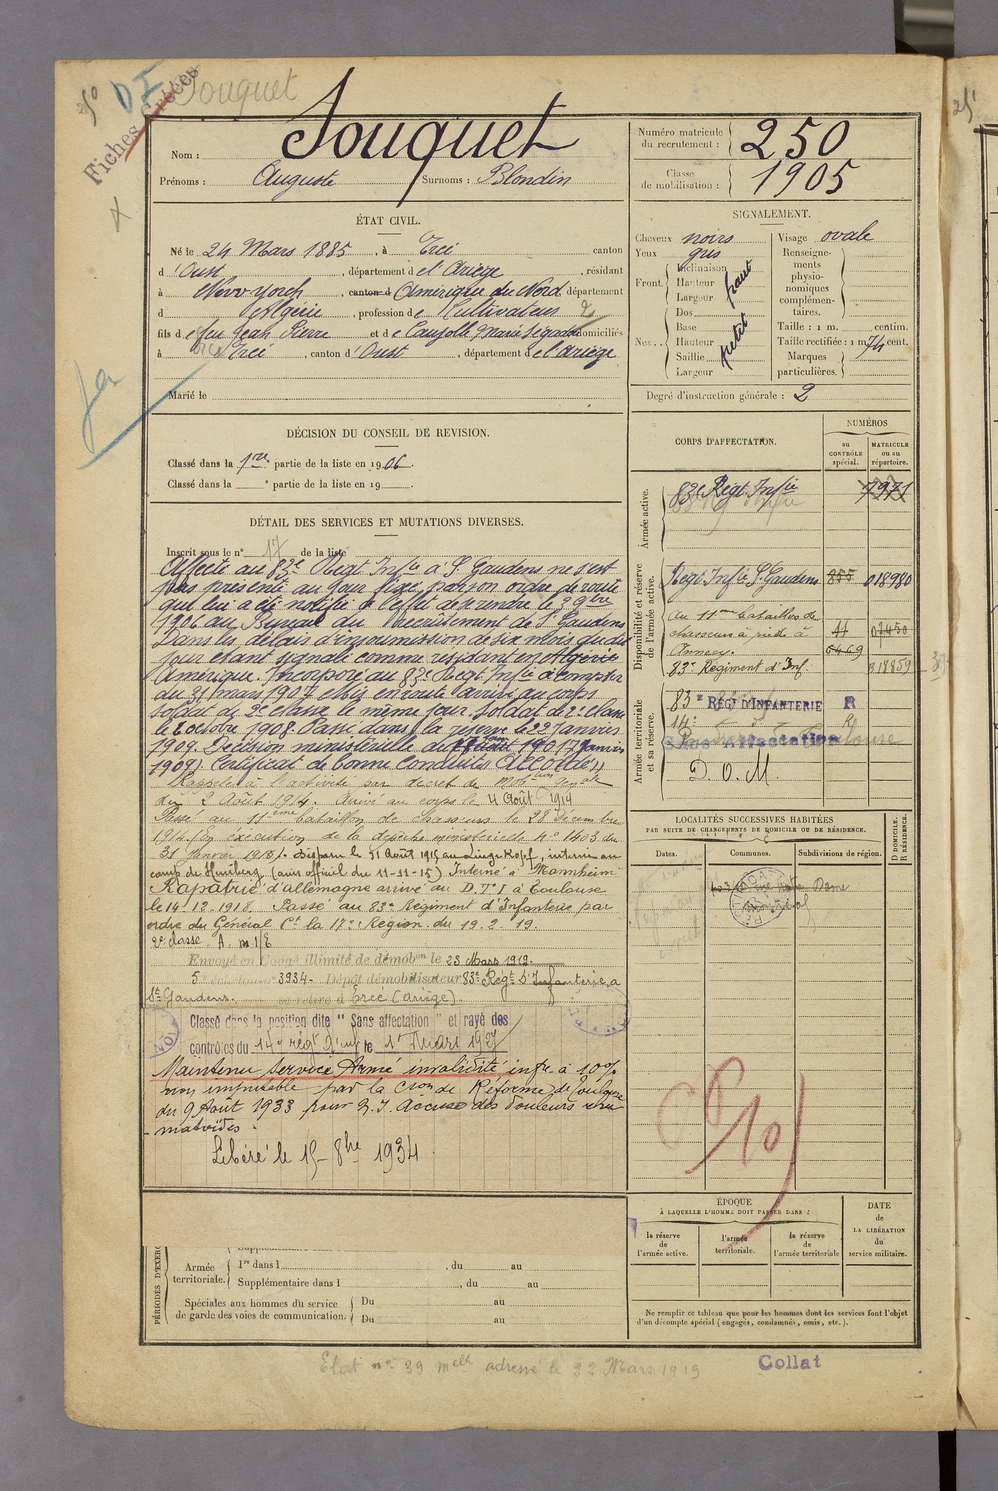 25° DI Souquet
Fiches Créées
Nom : Souquet
Prénoms : Auguste Surnoms : Blondin
Numéro matricule du recrutement : 250
Classe de mobilisation : 1905
ÉTAT CIVIL.
Né le 24 Mars 1885, à Ercé canton
d'Oust, département de l'Ariège, résidant
à New-yorck, canton d Amérique du Nord département
d Algérie, profession de Cultivateur 2
fils de feu Jean Pierre et de Caujolle Marie domiciliés
à Ercé, canton d'Oust, département de l'Ariège
Marié le
SIGNALEMENT.
Cheveux noirs
Yeux gris
Front. Inclinaison Hauteur Largeur haut
Nez.. Dos Base Hauteur Saillie Largeur petit
Visage ovale
Renseignements physionomiques complémentaires.
Taille : 1 m. centim.
Taille rectifiée : 1 m 74 cent.
Marques particulières.
Degré d'instruction générale : 2
DÉCISION DU CONSEIL DE REVISION.
Classé dans la 1re partie de la liste en 1906.
Classé dans la ° partie de la liste en 19
DÉTAIL DES SERVICES ET MUTATIONS DIVERSES.
Inscrit sous le n° 17 de la liste
Affecté au 83e Régt Inftie à St Gaudens ne s'est
pas présenté au jour fixé par son ordre de route
qui lui a été notifié à l'effet de se rendre le 9 9bre
1906 au Bureau du Recrutement de St Gaudens
Dans les délais d'insoumission de six mois du dit
jour étant signalé comme résidant en Algérie
Amérique. Incorporé au 83e Régt Inftie à compter
du 31 mars 1907 et mis en route arrivé au corps
soldat de 2e classe le même jour. Soldat de 1e classe
le 8 octobre 1908. Passé dans la réserve le 22 Janvier
1909. Décision ministérielle du
1909) Certificat de bonne conduite "Accordé"
Rappelé à l'activité par décret de Mobtion Génle
du 2 Août 1914. Arrivé au corps le 4 Août 1914
Passé au 11eme bataillon de chasseurs le 28 Décembre
1914. En exécution de la dépêche ministérielle n° 1403 du
31 Janvier 1915. Disparu le 31 Août 1915 au Linge Kopf, interné au
camp de (avis officiel du 11-11-15) Interné à Mannheim
Rapatrié d'allemagne arrivé au D.T.I à Toulouse
le 14-12-1918. Passé au 83e Régiment d'Infanterie par
ordre du Général Ct la 17e Région du 19.2.19.
2e classe A.
Envoyé en Congé illimité de démobon le 23 Mars 1919.
5e échelon n° 3934. Dépôt démobilisateur 83e Régt d'Infanterie, à
St Gaudens. se retire à Ercé (Ariège).
Classé dans la position dite " Sans affectation " et rayé des
contrôles du 14e régt d'inf le 1er Mars 1927
Maintenu Service Armé invalidité infre à 10%
non imputable par la Cson de Réforme de Toulouse
du 9 Août 1933 pour D.I. Accuse des douleurs rhu
matoïdes.
Libéré le 15 8bre 1934.
CORPS D'AFFECTATION.
NUMÉROS
au CONTRÔLE spécial.
MATRICULE ou au répertoire.
Armée active.
83e Régt Inftie 7971
Disponibilité et réserve de l'armée active.
Régt Inftie St Gaudens 855 018980
Au 11eme bataillon de
chasseurs à pied à 11 07450
Annecy. 6469
83e Régiment d'Inf. 018859
Armée territoriale et sa réserve.
83e RÉGt D'INFANTERIE R
14e R
Sans Affectation
D. O. M.
LOCALITÉS SUCCESSIVES HABITÉES
PAR SUITE DE CHANGEMENTS DE DOMICILE OU DE RÉSIDENCE.
Dates. Communes. Subdivisions de région.
D DOMICILE. R RÉSIDENCE.
rue Notre Dame
Montréal
10
ÉPOQUE
À LAQUELLE L'HOMME DOIT PASSER DANS :
la réserve de l'armée active.
l'armée territoriale.
la réserve de l'armée territoriale
DATE de LA LIBÉRATION du service militaire.
Ne remplir ce tableau que pour les hommes dont les services font l'objet
d'un décompte spécial (engagés, condamnés, omis, etc.).
PÉRIODES D'EXERC
Armée territoriale.
1re dans l , du au
Supplémentaire dans l , du au
Spéciales aux hommes du service
de garde des voies de communication.
Du au
Du au
Etat n° 39 melle adressé le 22 Mars 1919
Collat